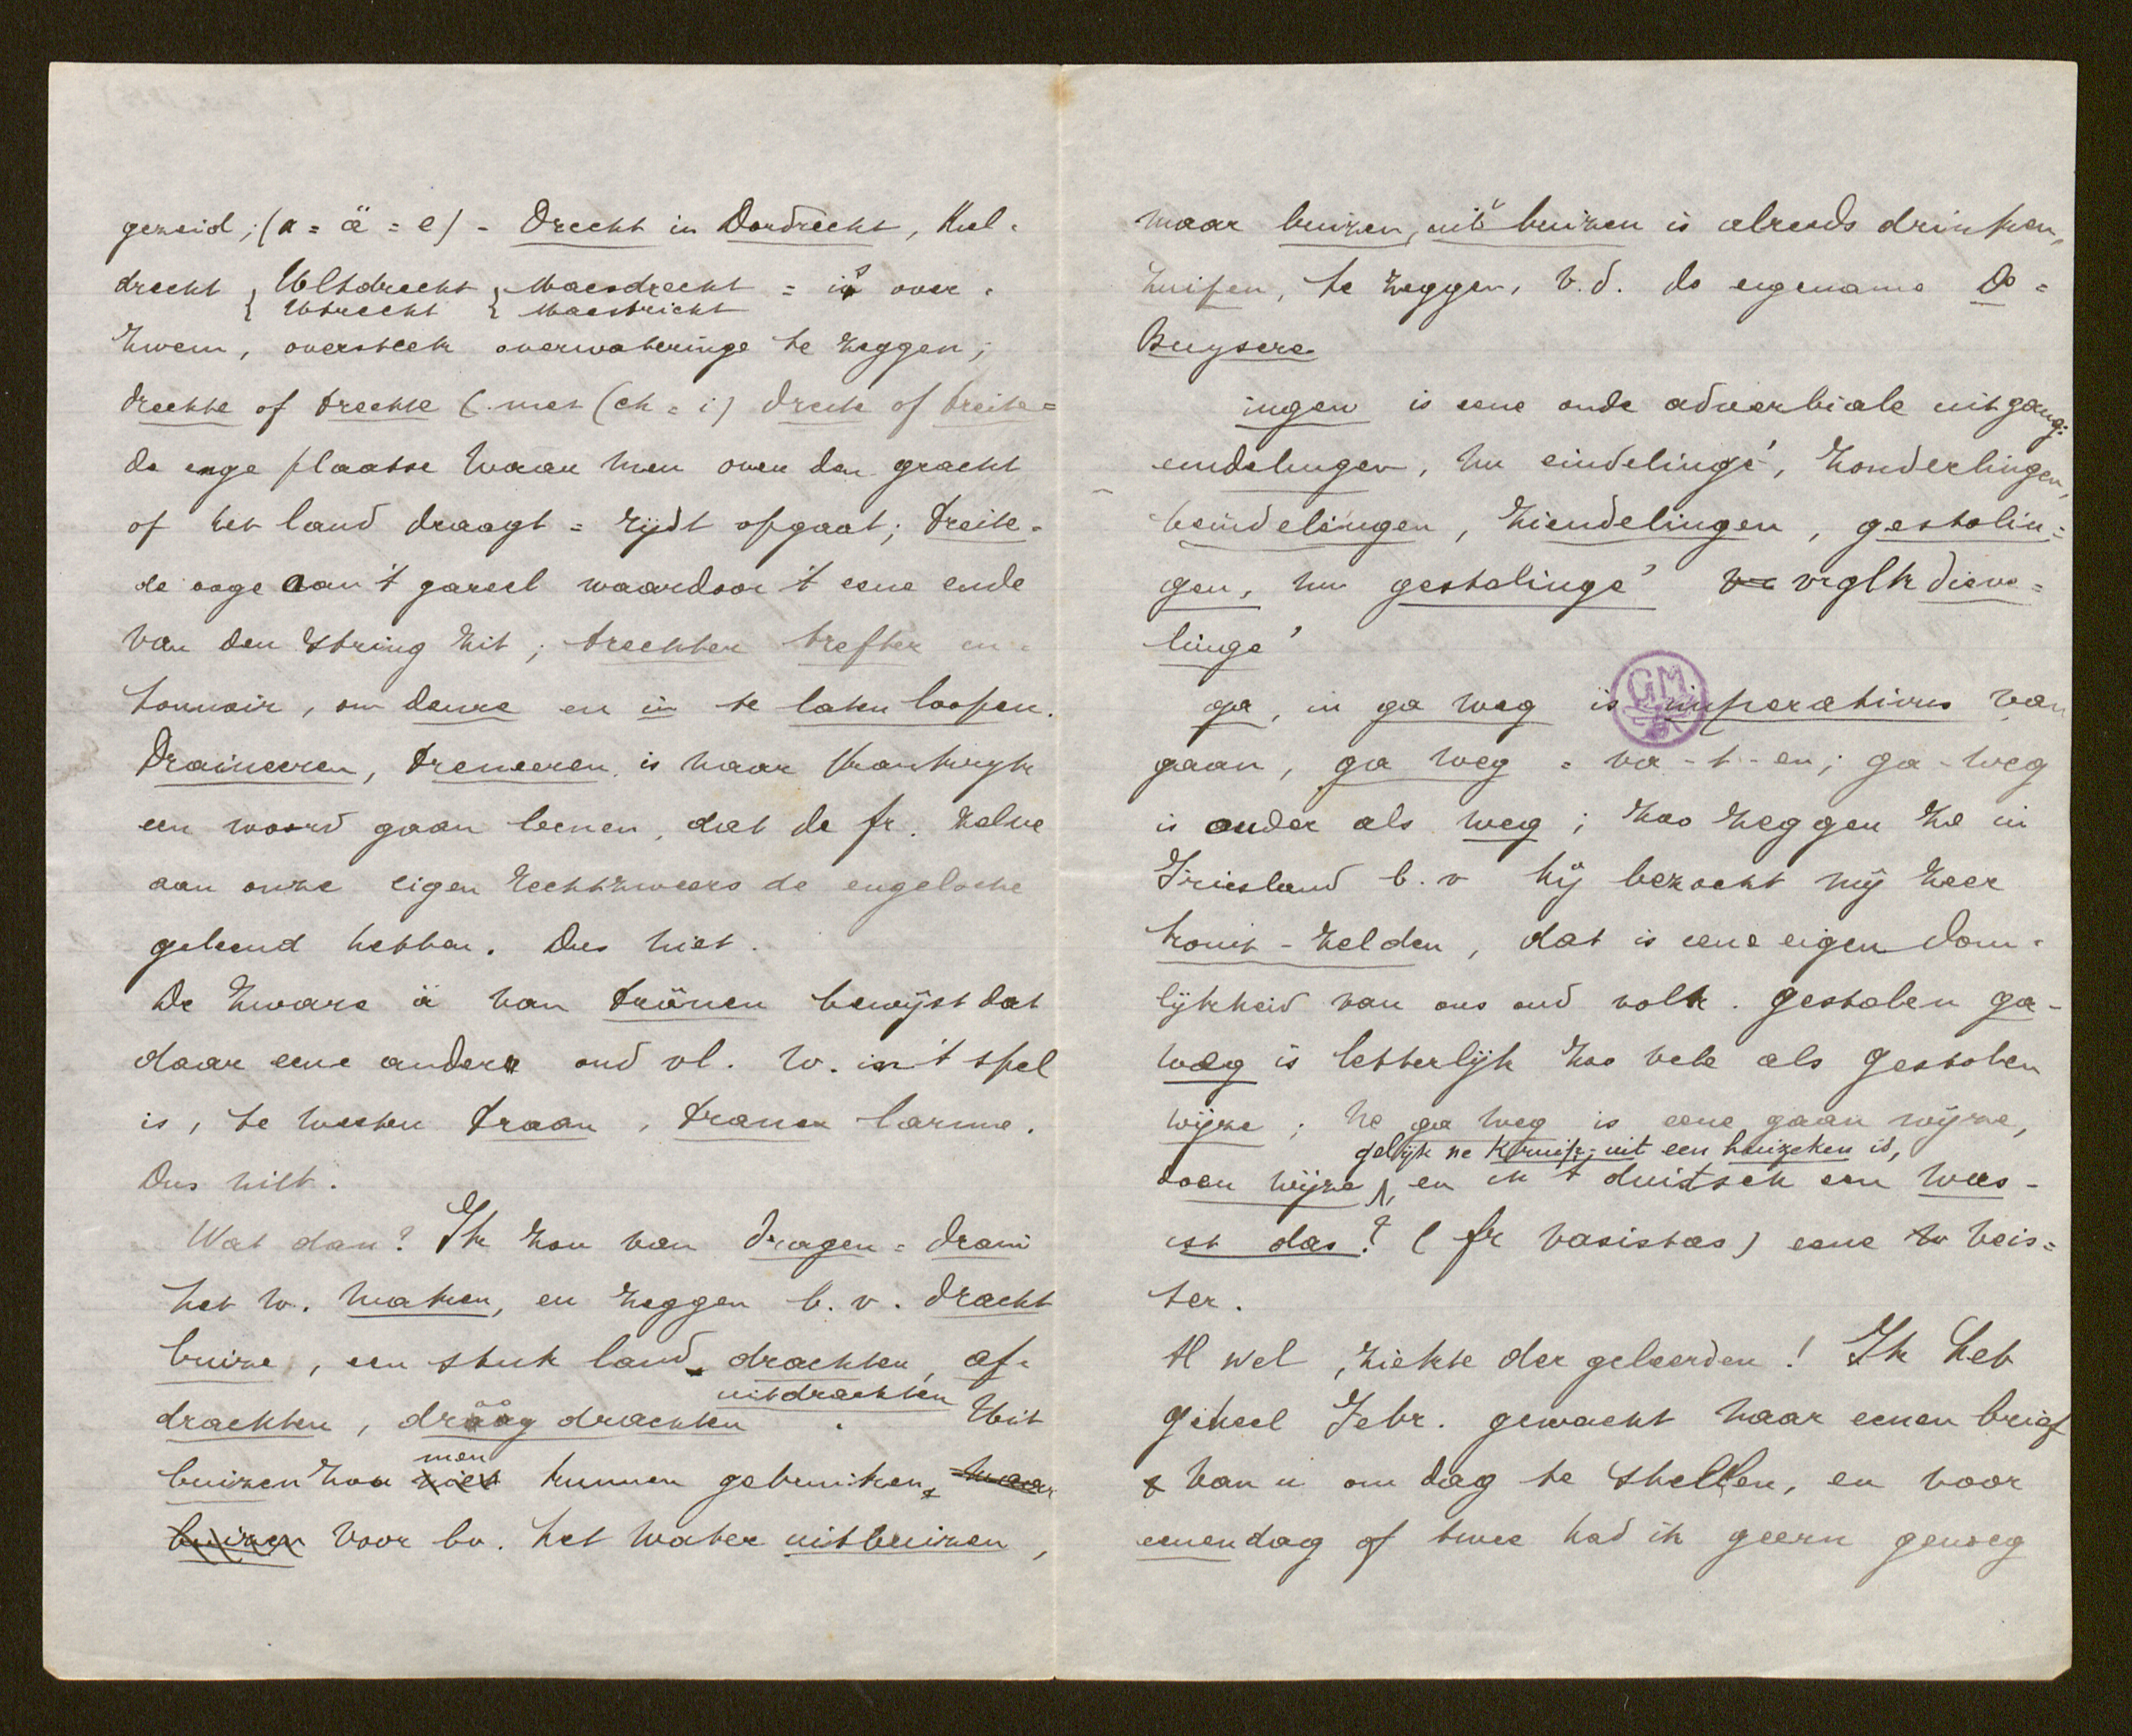 gezeid; (a = ä = e) - Drecht in Dordrecht, Kiel-
drecht { Woltdrecht { Maesdrecht = is over-
{ Utrecht { Maestricht
zwem, oversteek overwateringe te zeggen;
drechte of trechte (met (ch = i) dreite of treite =
de enge plaatse waar men over den gracht
of het land draagt = rijdt of gaat; treite =
de ooge aan 't gareel waardoor 't eene ende
van den string zit; trechter trefter en-
tonnoir, om deure en in te laten loopen.
Draineeren, treneeren is naar Frankrijk
een woord gaan leenen, dat de fr. zelve
aan onze eigen rechtzweers de engelsche
geleend hebben. Dus niet.
De zware ä van tränen bewijst dat
daar eene ander oud vl. w. in 't spel
is, te weten traan, tranen larme.
Dus niet.
Wat dan? Ik zou van dragen = drani
het w. maken, en zeggen b.v. dracht
buize, een stuk land drachten, af-
uitdrachten
drachten, dräägdrachten. Uit
men
buizen zou niet kunnen gebruiken, maar
buizen voor bv. het water uitbuizen,
maar buizen, uitbuizen is alreeds drinken,
zuipen, te zeggen, v.d. de eigename De =
Buysere
ingen is eene oude adverbiale uitgang:
eindelingen, nu eindelinge', zonderlingen,
beindelingen, ziendelingen, gestolin =
gen, nu gestolinge' vrglk dieve =
linge'
ga, in ga weg is imperativus van
gaan, ga weg = va-t-en; ga-weg
is ouder als weg; zoo zeggen ze in
Friesland b.v hij bezoekt mij zeer
zonit-zelden, dat is eene eigendom-
lijkheid van ons oud volk. gestolen ga-
weg is letterlijk zoo vele als gestolen
wijze; ne ga weg is eene gaan wijze,
gelijk ne Kruipuit een huizeken is,
doen wijze, en in 't duitsch een was-
ist das? (fr vasistas) eene veis =
ter.
Al wel, ziekte der geleerden! Ik heb
geheel Febr. gewacht naar eenen brief
van u om dag te stellen, en voor
eenen dag of twee had ik geern genoeg